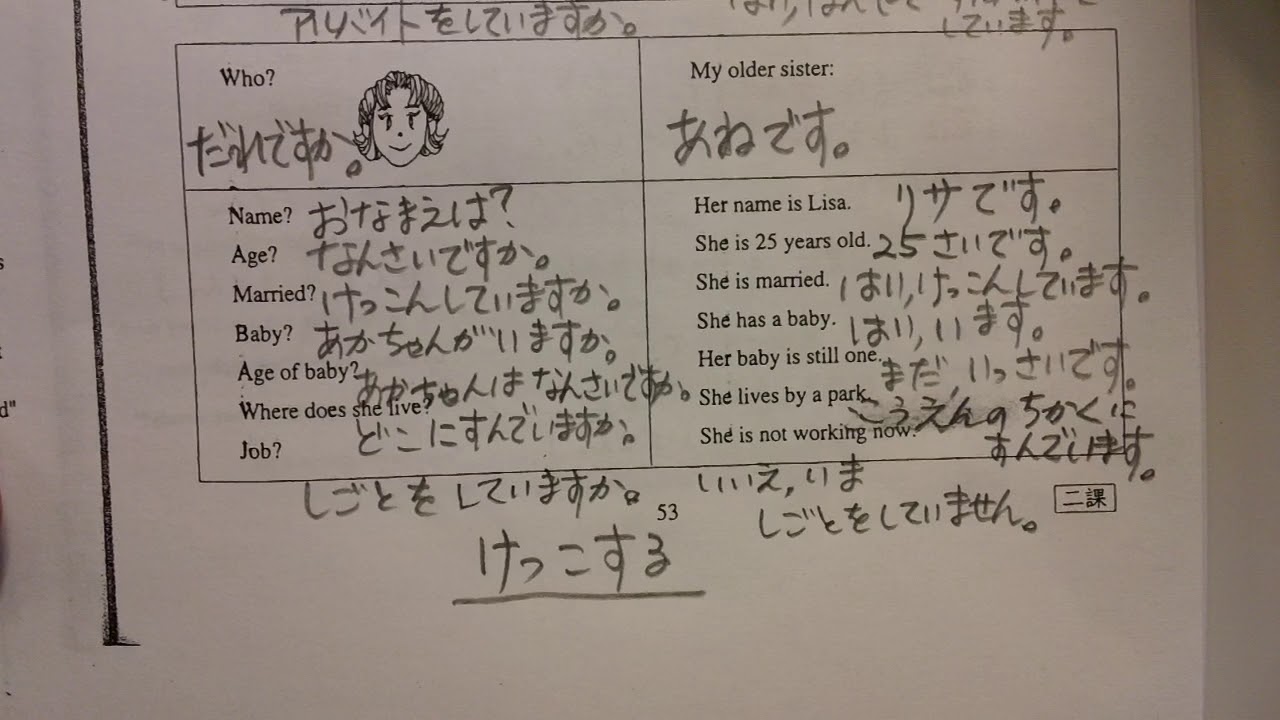 アルバイトをしていますか。
しています。
Who?
だれですか。
My older sister:
あねです。
Name? おなまえは?
Her name is Lisa. リサです。
Age? なんさいですか。
She is 25 years old. 25さいです。
Married? けっこんしていますか。
She is married. はい, けっこんしています。
Baby? あかちゃんがいますか。
She has a baby. はい, います。
Age of baby? あかちゃんはなんさいですか。
Her baby is still one. まだ, いっさいです。
Where does she live? どこにすんでいますか。
She lives by a park. こうえんのちかくに
すんでいます。
Job? しごとをしていますか。
She is not working now. いいえ, いま
しごとをしていません。
d"
53
二課
けっこする